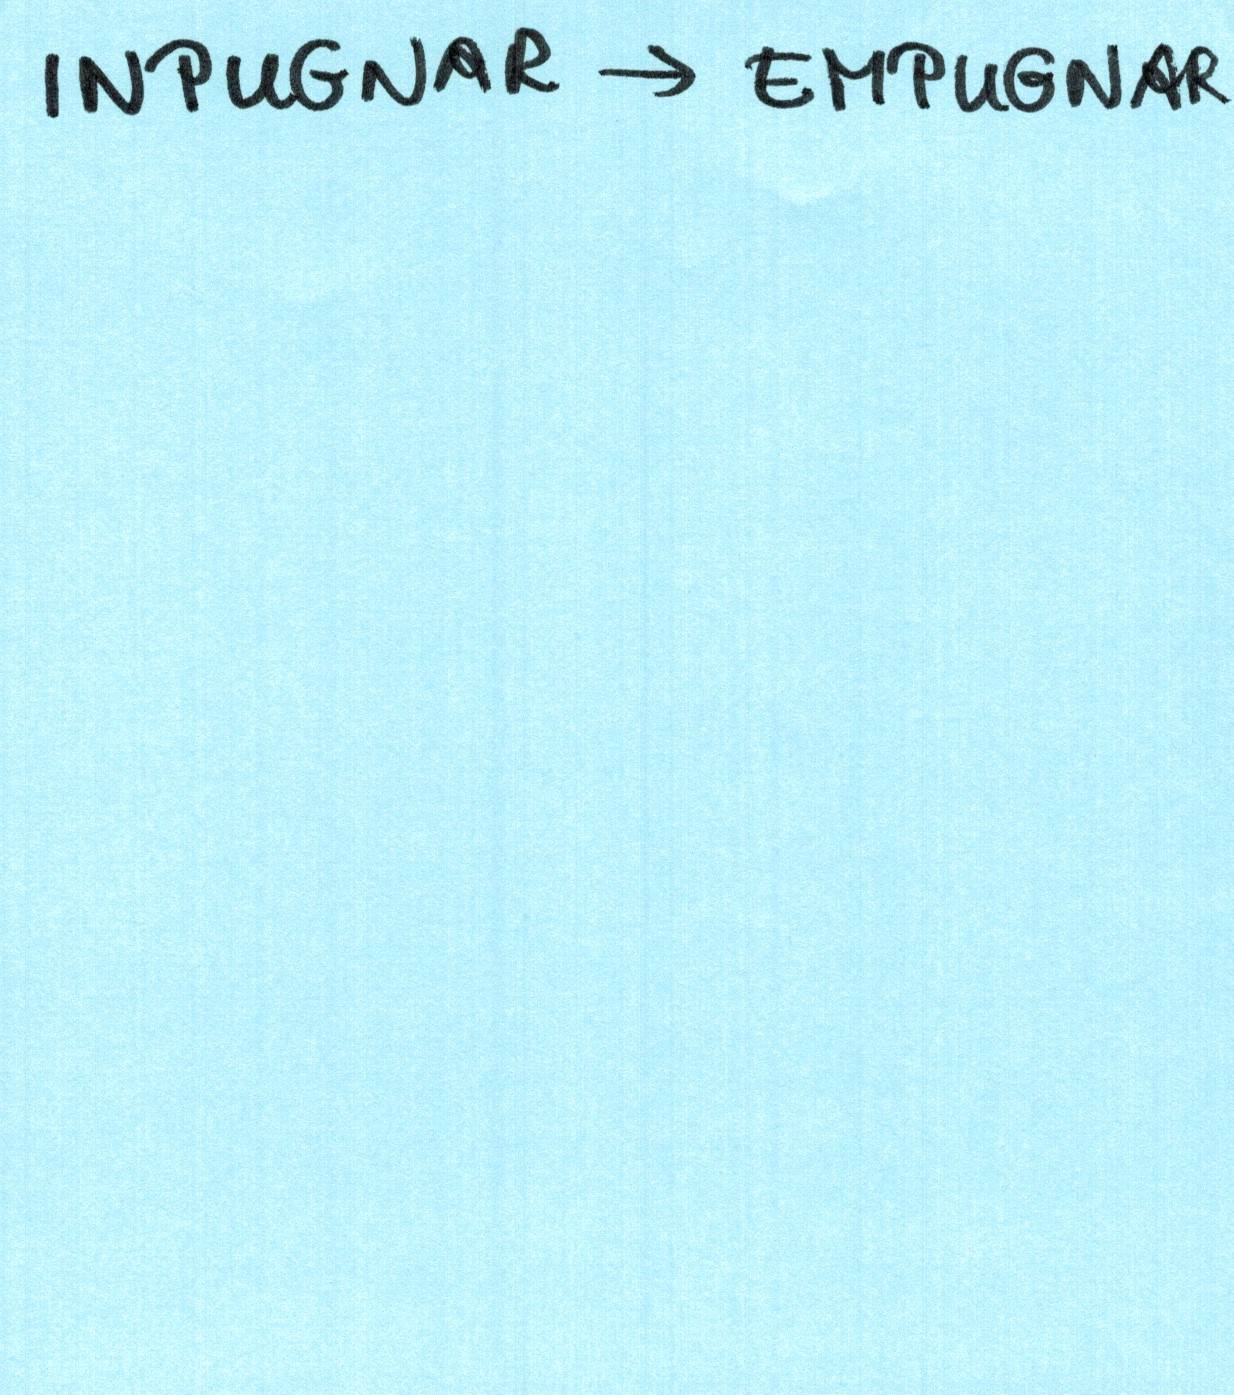 INPUGNAR → EMPUGNAR